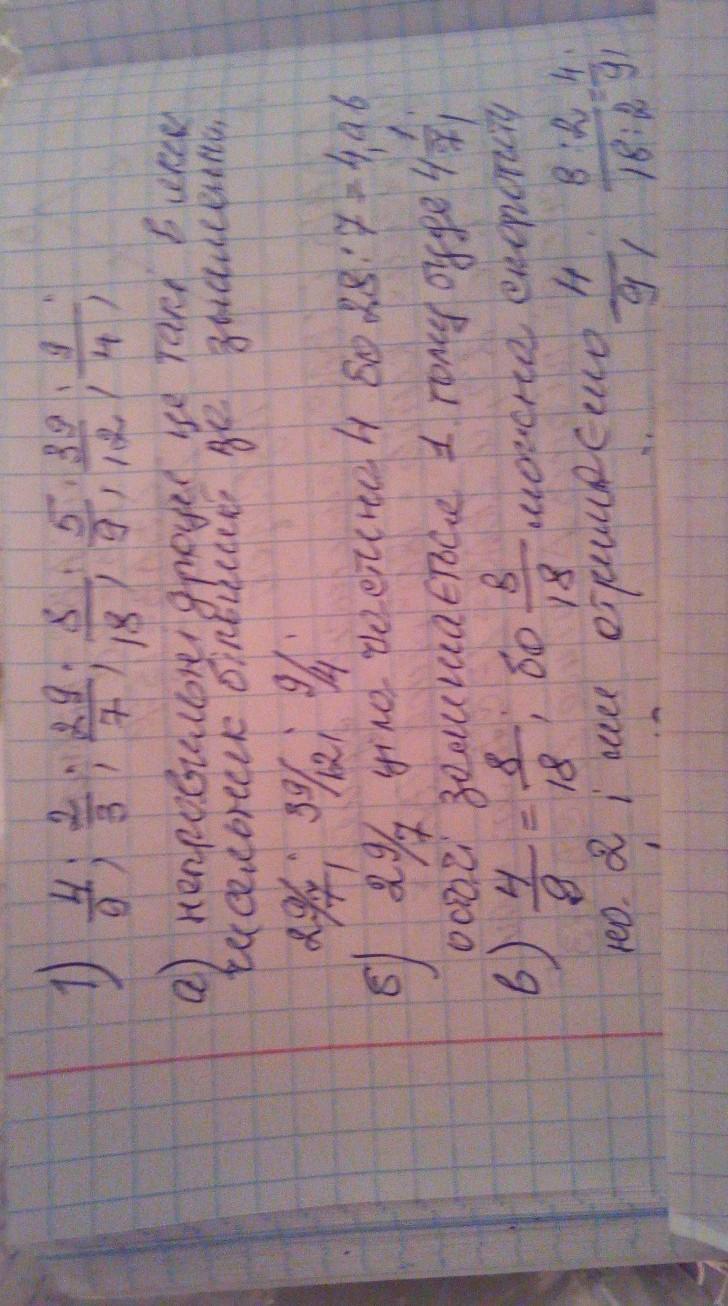 1) 4/9; 2/3; 29/7; 8/18; 5/9; 39/12; 9/4;
а) неправильні дроби це такі в яких
чисельник більший за знаменник.
29/7; 39/12; 9/4.
б) 29/7 ціла частина 4 бо 28:7=4, а в
остачі залишається 1 тому буде 4 1/7;
в) 4/9 = 8/18, бо 8/18 можна скоротити
на 2 і ми отримаємо 4/9; 8:2/18:2=4/9;